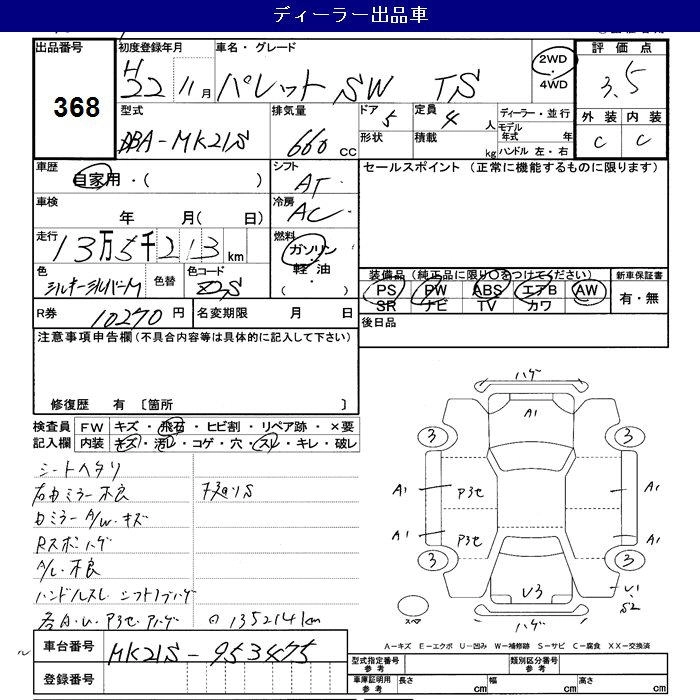 ディーラー出品車
出品番号 初度登録年月 車名・グレード 2WD ・ 4WD 評価点
368
H 22 11月 パレットSW TS 3.5
型式 排気量 ドア 定員 ディーラー・並行 外装 内装
DBA-MK21S 660 CC 5 4人 モデル年式 年 C C
形状 積載 kg ハンドル 左・右
車歴 シフト セールスポイント (正常に機能するものに限ります)
自家用・( ) AT
車検 冷房
年 月( 日) AC
走行 燃料
13万5千213km ガソリン・軽油・( )
色 色替 色コード 装備品(純正品に限り○をつけてください) 新車保証書
シルキーシルバーM Z2S PS PW ABS エアB AW 有・無
SR ナビ TV カワ
R券 10270円 名変期限 月 日 後日品
注意事項申告欄(不具合内容等は具体的に記入して下さい)
修復歴 有 〔箇所 〕
検査員 FW キズ・飛石・ヒビ割・リペア跡・×要
記入欄 内装 キズ・汚レ・コゲ・穴・スレ・キレ・破レ
シートヘタリ
右カミラー不良
カミラーA/W・キズ
Rスポハゲ
A/L不良
ハンドルスレ シフトノブハゲ
各A・U・P3セ・Pハゲ ◎135214km
車台番号 MK21S-953475
登録番号
ハゲ
A1
3 3
A1 P3セ A1
A1 P3セ A1
3 3
U3 U1
S2
ハゲ
スペア
A−キズ E−エクボ U−凹み W−補修跡 S−サビ C−腐食 XX−交換済
型式指定番号 参考 類別区分番号 参考
車庫証明用 参考 長さ cm 幅 cm 高さ cm